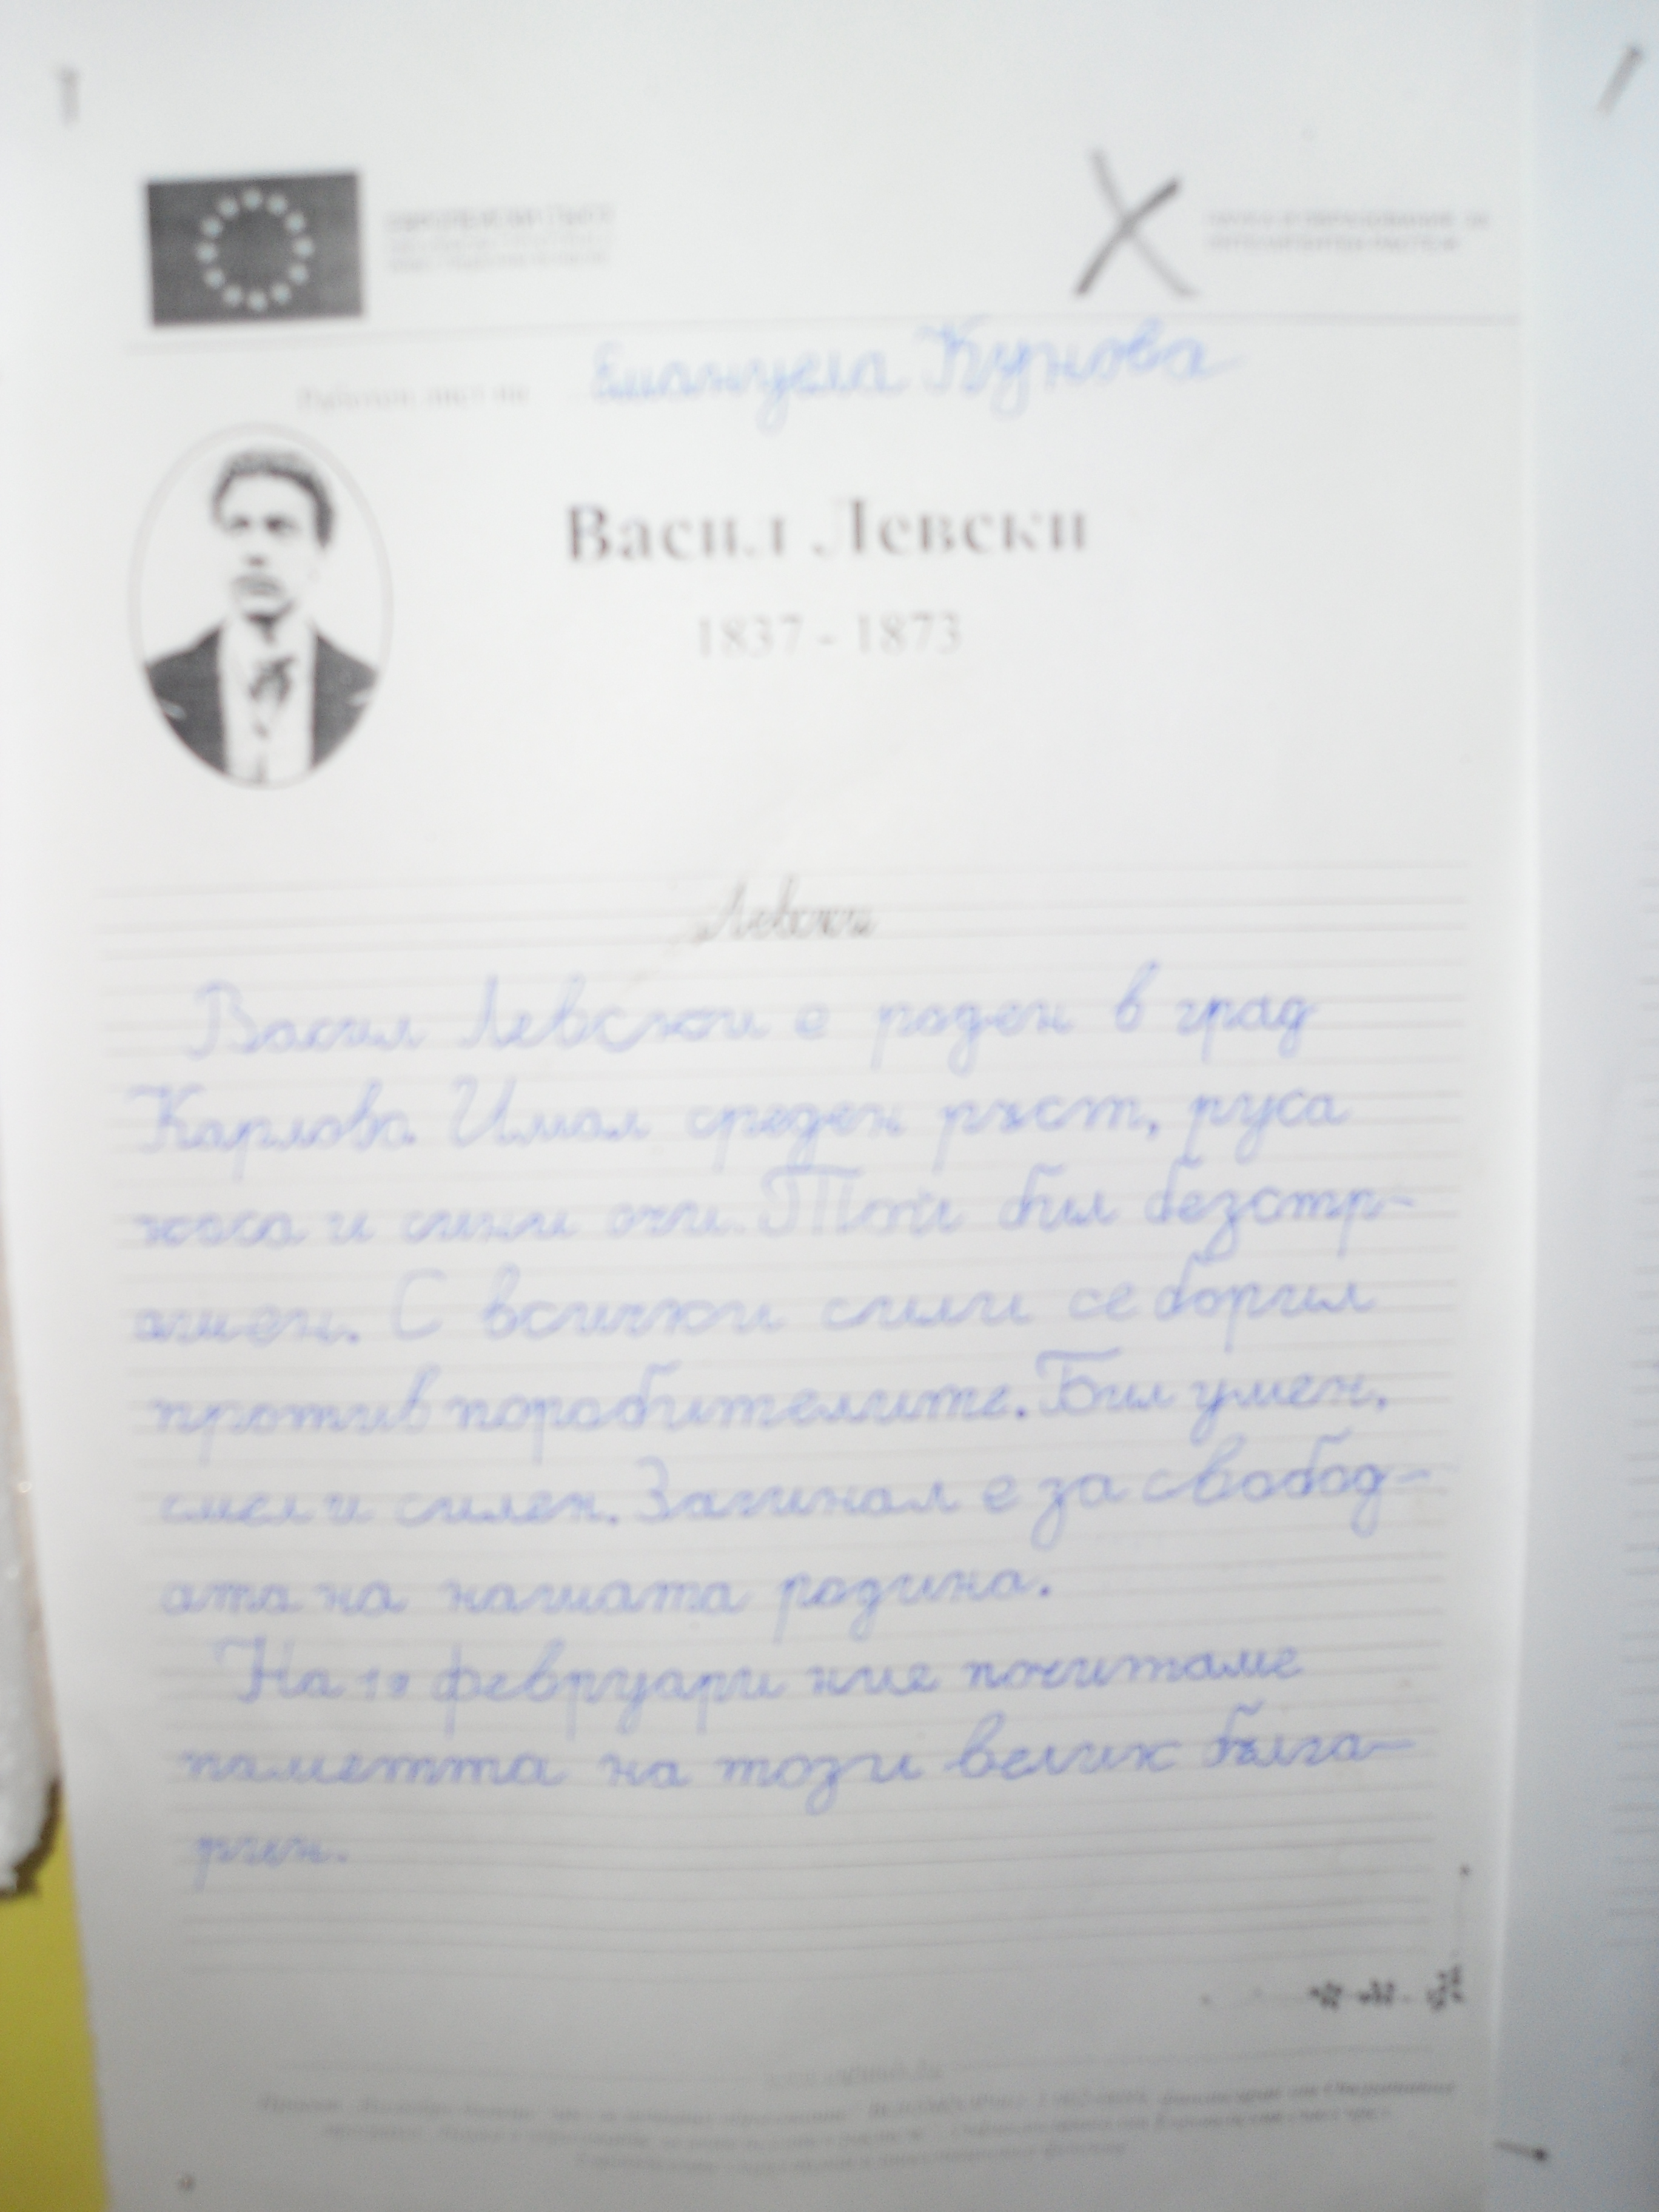 ЕВРОПЕЙСКИ СЪЮЗ
НАУКА И ОБРАЗОВАНИЕ ЗА
ИНТЕЛИГЕНТЕН РАСТЕЖ
Работен лист на Емануела Кунова
Васил Левски
1837 - 1873
Левски
Васил Левски е роден в град
Карлово. Имал среден ръст, руса
коса и сини очи. Той бил безстр-
ашен. С всички сили се борил
против поробителите. Бил умен,
смел и силен. Загинал е за свобод-
ата на нашата родина.
На 19 февруари ние почитаме
паметта на този велик бълга-
рин.